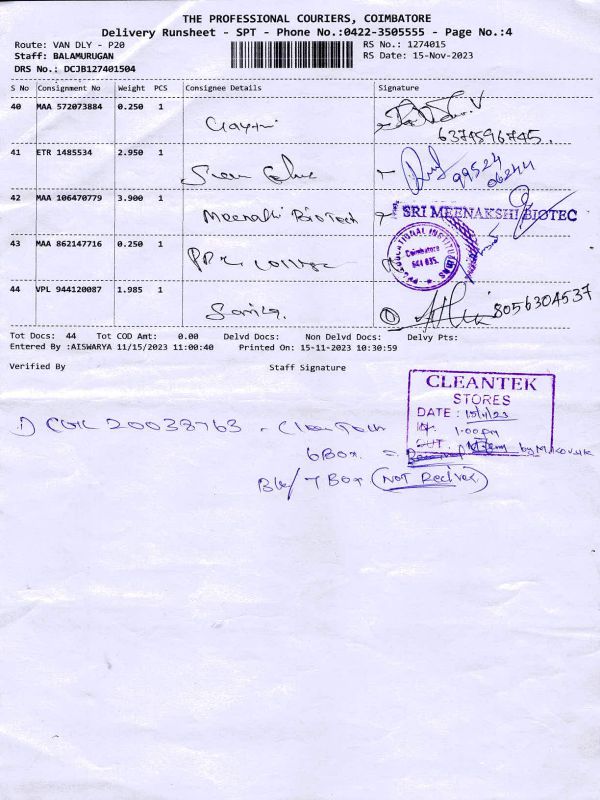 THE PROFESSIONAL COURIERS, COIMBATORE
Delivery Runsheet - SPT - Phone No.:0422-3505555 - Page No.:4
Route: VAN DLY - P20 RS No.: 1274015
Staff: BALAMURUGAN RS Date: 15-Nov-2023
DRS No.: DCJB127401504
S No Consignment No Weight PCS Consignee Details Signature
40 MAA 572073884 0.250 1
6374596745.
41 ETR 1485534 2.950 1
99524
06244
42 MAA 106470779 3.900 1 Meenakhi BioTech
SRI MEENAKSHI BIOTEC
43 MAA 862147716 0.250 1
EDUCATIONAL INSTITUTIONS
Coimbatore
641 035.
44 VPL 944120087 1.985 1 8056304537
Tot Docs: 44 Tot COD Amt: 0.00 Delvd Docs: Non Delvd Docs: Delvy Pts:
Entered By :AISWARYA 11/15/2023 11:00:40 Printed On: 15-11-2023 10:30:59
Verified By Staff Signature
CLEANTEK
STORES
DATE : 15/11/23
1:00 pm
OUT
1) 20038763 -
6 Box =
7 Box (NOT Recived)